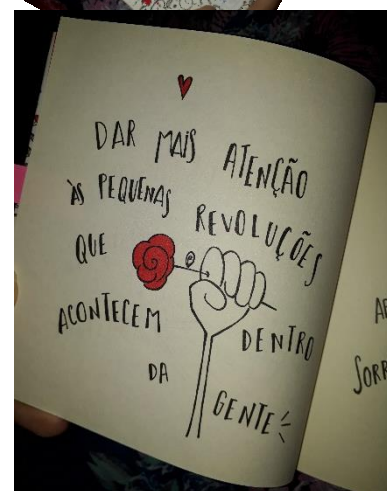 DAR MAIS ATENÇÃO
ÀS PEQUENAS REVOLUÇÕES
QUE
ACONTECEM DENTRO
DA GENTE